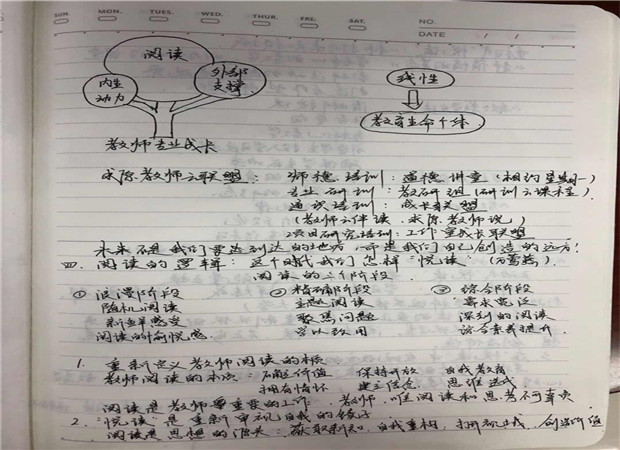 SUN. MON. TUES. WED. THUR. FRI. SAT. NO.
DATE / /
阅读
内生动力
外部支撑
教师专业成长
线性
教育生命个体
求际教师云联盟: 师德培训:道德讲堂(相约星期一)
专业研训:教研组(研训云课程)
通识培训:成长联盟
(教师云伴读、求际教师说)
项目研究培训:工作室成长联盟
未来不是我们要达到达的地方,而是我们自己创造的远方!
四、阅读的逻辑:这个时代我们怎样“悦读”
阅读的三个阶段
① 浪漫阶段 ② 精确阶段 ③ 综合阶段
随机阅读 主题阅读 需求宽泛
新鲜感受 聚焦问题 深刻的阅读
阅读的愉悦感 学以致用 综合素养提升
1. 重新定义教师阅读的本质
教师阅读的本质:确定价值 保持开放 自我教育
拥有情怀 建立信念 思维迭代
阅读是教师最重要的工作,教师,唯阅读和思考不可辜负
2. “悦读”是重新审视自我的镜子
阅读是思想的源头:获取新知,自我重构,创造价值